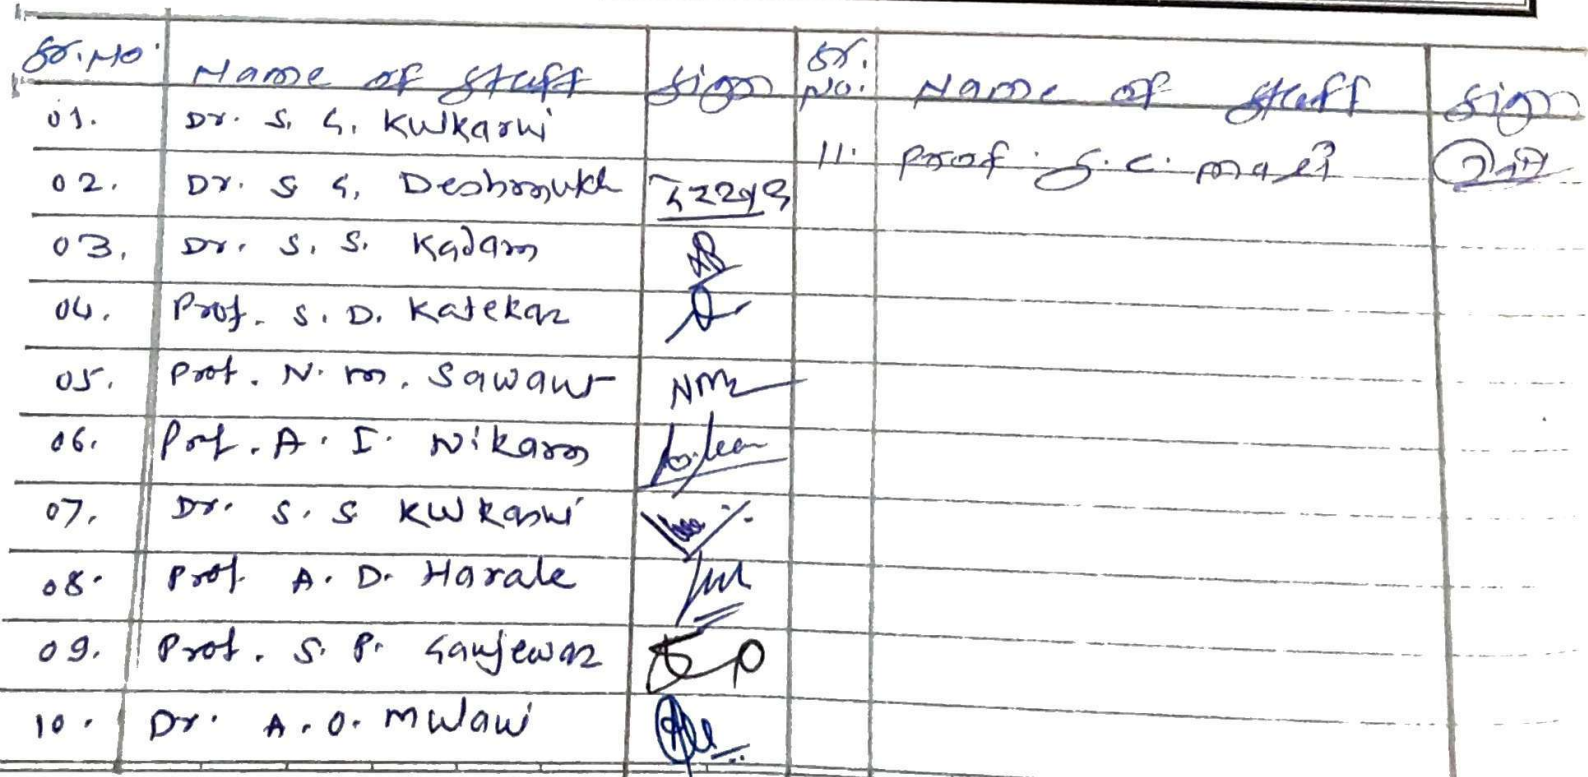 Sr. No. Name of staff sign Sr. No. Name of staff sign
01. Dr. S. G. Kulkarni
02. Dr. S G. Deshmukh
03. Dr. S. S. Kadam
04. Prof. S. D. Katekar
05. Prof. N. M. Sawant NM
06. Prof. A. I. Nikam
07. Dr. S. S Kulkarni
08. Prof. A. D. Harale
09. Prof. S. P. Ganjewar
10. Dr. A. O. Mulani
11. Prof. S. C. Mali